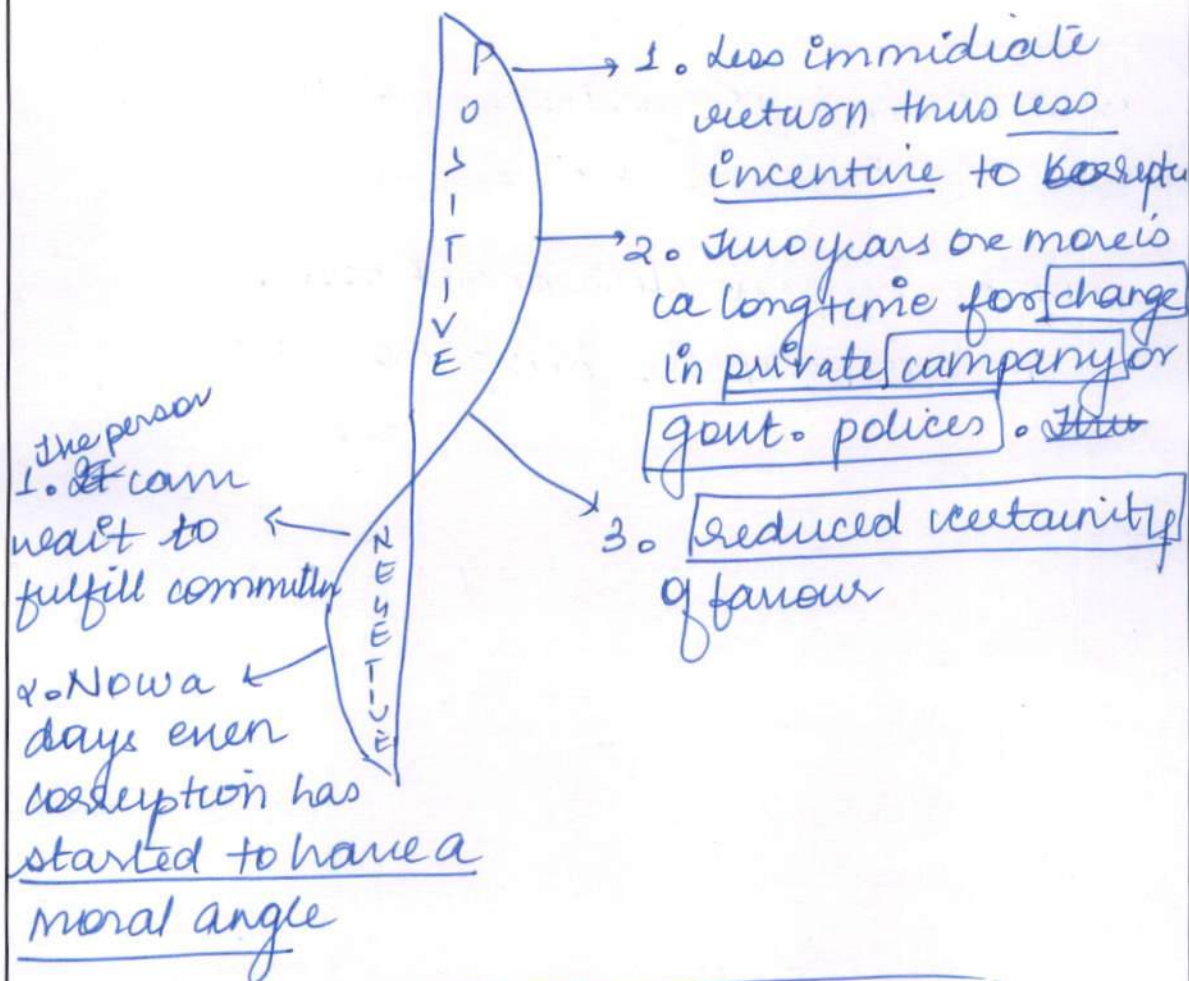 POSITIVE
1. Less immidiate
return thus less
incentive to
2. Two years or more is
a long time for change
in private company or
govt. polices.
3. reduced certainity
of favour
NEGETIVE
The person
1. can
wait to
fulfill
2. Now a
days even
corruption has
started to have a
moral angle